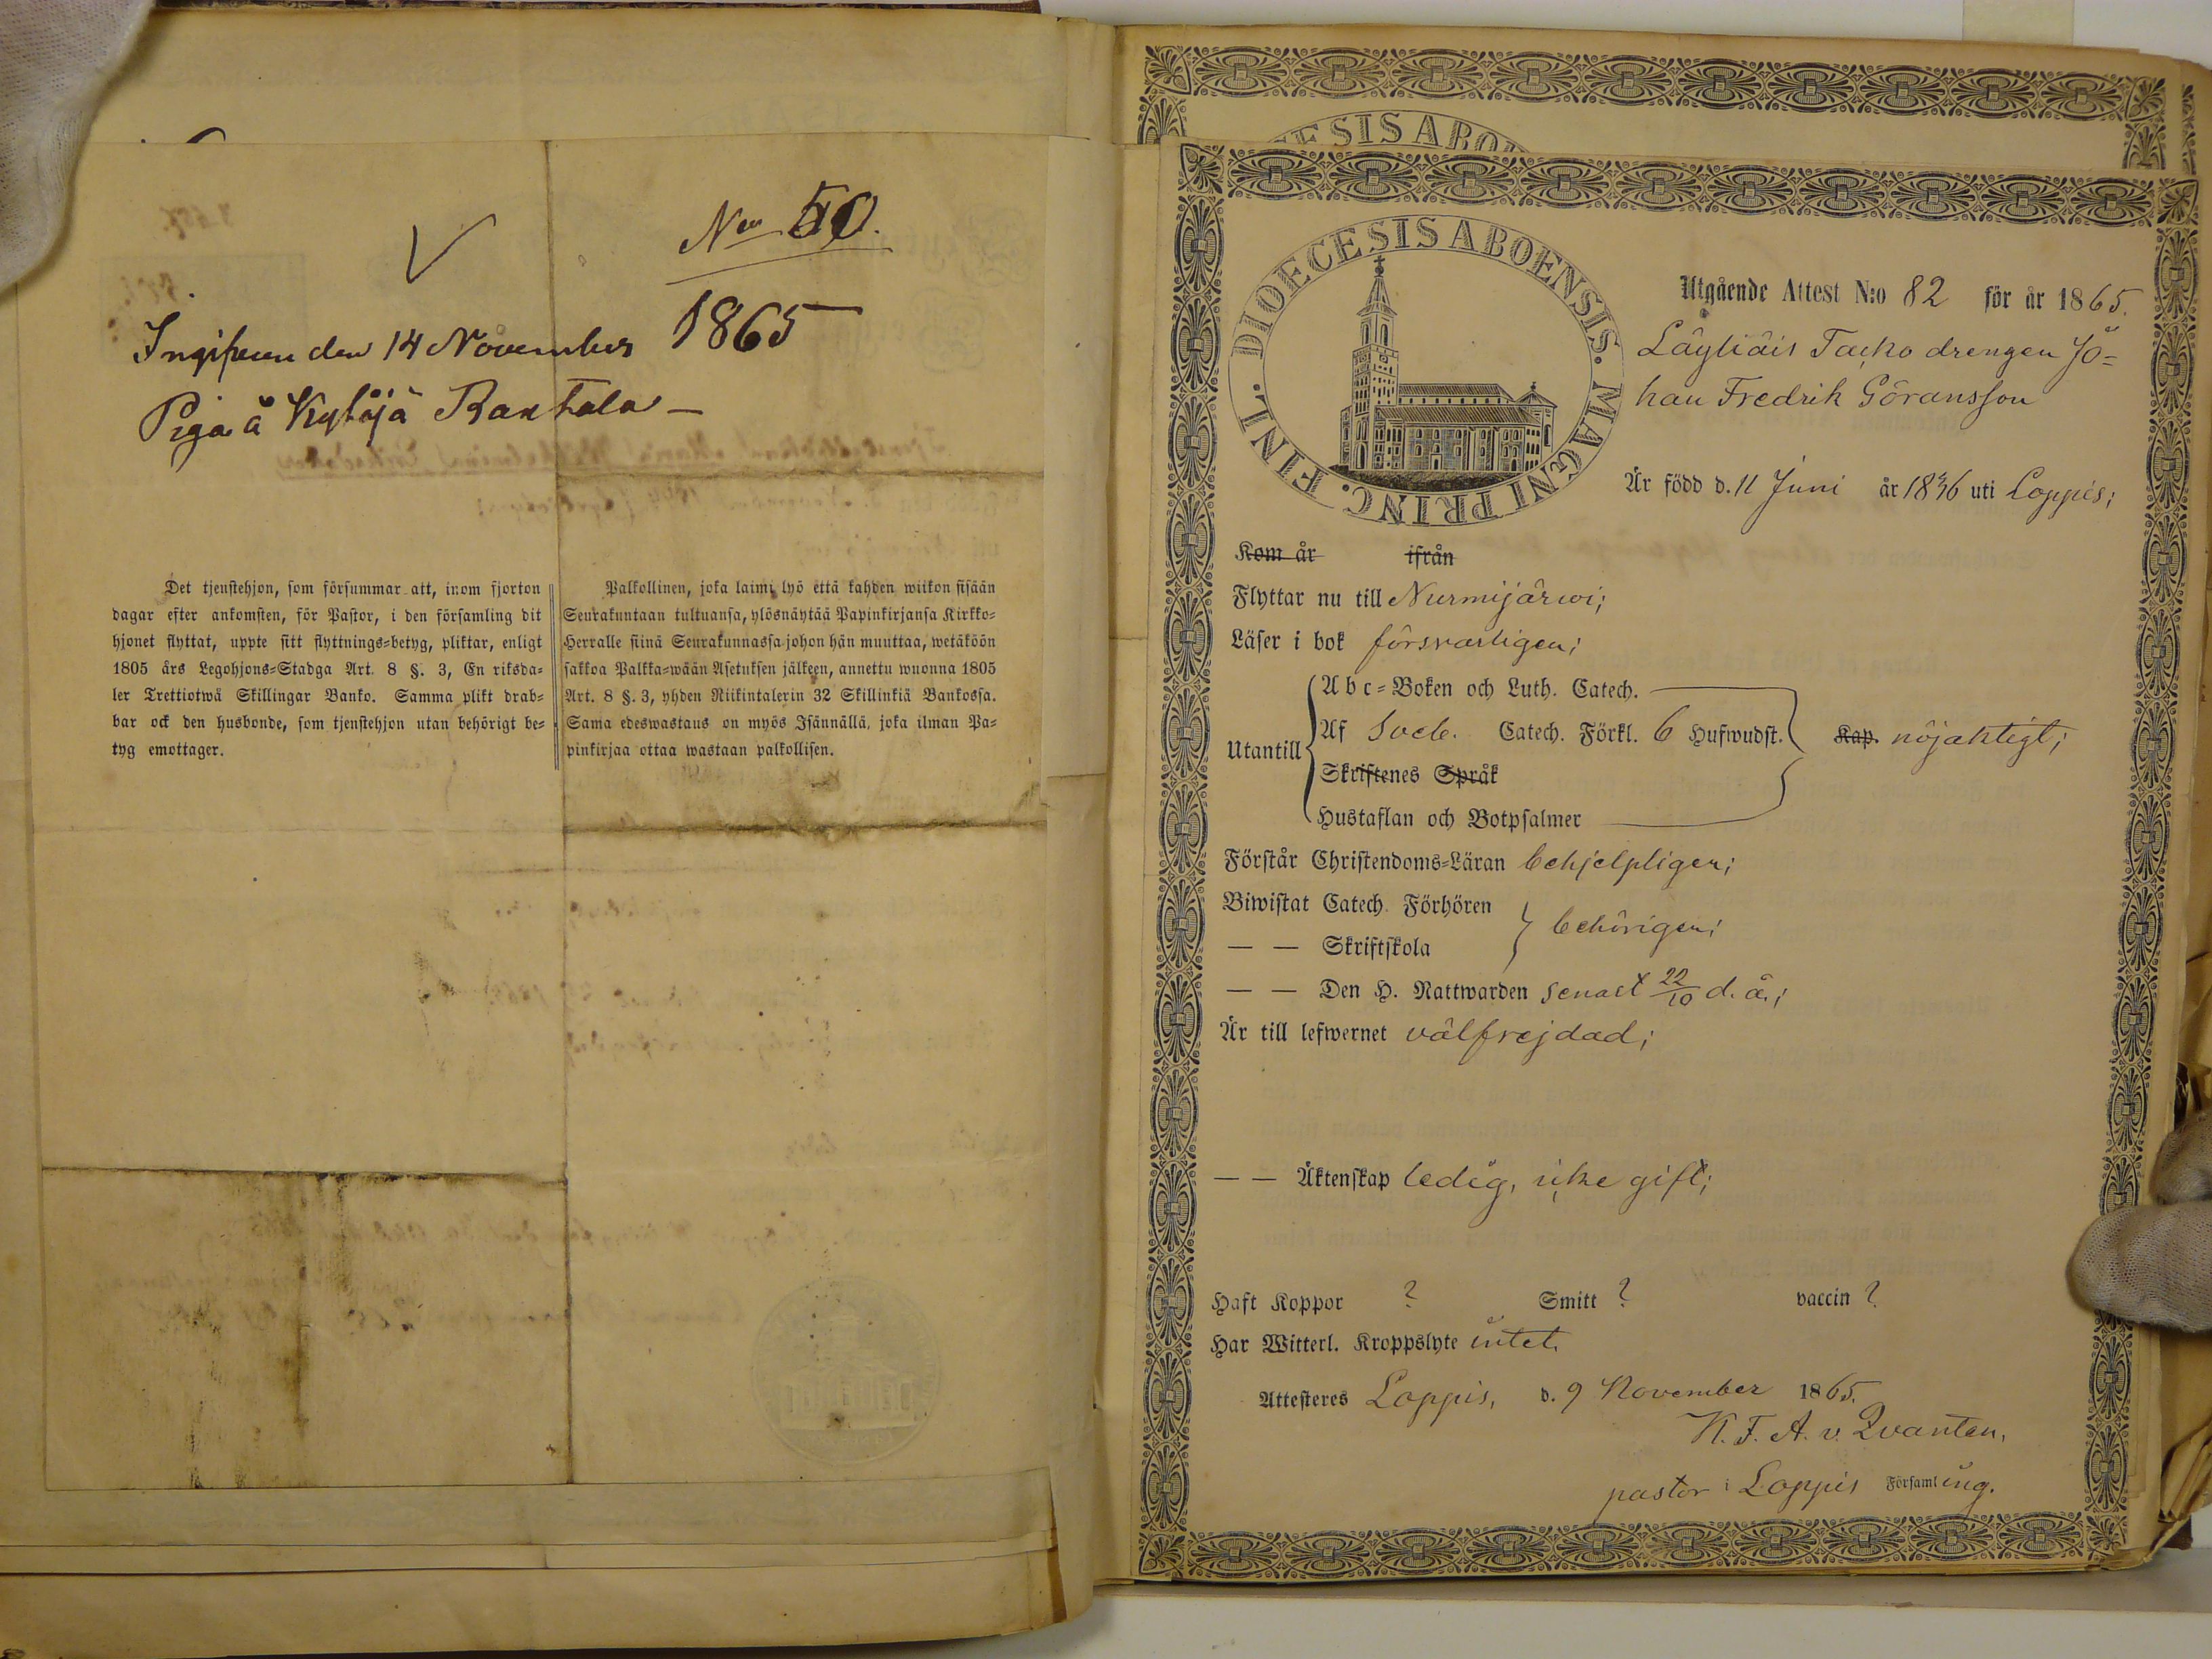 No 50.
1865
Ingifven den 14 November
Piga å Kytäjä Rantala —
Det tjenstehjon, som försummar att, inom fjorton
dagar efter ankomsten, för Pastor, i den församling dit
hjonet flyttat, uppte sitt flyttnings=betyg, pliktar, enligt
1805 års Legohjons=Stadga Art. 8 §. 3, En riksda=
ler Trettiotwå Skillingar Banko. Samma plikt drab=
bar ock den husbonde, som tjenstehjon utan behörigt be=
tyg emottager.
Palkollinen, joka laimi lyö että kahden wiikon sisään
Seurakuntaan tultuansa, ylösnäytää Papinkirjansa Kirkko=
Herralle siinä Seurakunnassa johon hän muuttaa, wetäköön
sakkoa Palkka=wään Asetuksen jälkeen, annettu wuonna 1805
Art. 8 §. 3, yhden Riikintalerin 32 Skillinkiä Bankossa.
Sama edeswastaus on myös Isännällä, joka ilman Pa=
pinkirjaa ottaa wastaan palkollisen.
DIOECESIS ABOENSIS. MAGNI PRINC. FINL.
Utgående Attest N:o 82 för år 1865.
Läyliäis Tacko drengen Jo=
han Fredrik Göransson
Är född d. 11 Juni år 1836 uti Loppis;
Kom år ifrån
Flyttar nu till Nurmijärwi;
Läser i bok försvarligen;
Utantill
Abc=Boken och Luth. Catech.
Af Sveb. Catech. Förkl. 6 Hufwudst. Kap. nöjaktigt;
Skriftenes Språk
Hustaflan och Botpsalmer
Förstår Christendoms=Läran behjelpligen;
Biwistat Catech. Förhören
— — Skriftskola
behörigen;
— — Den H. Nattwarden senast 22/10 d. å.;
Är till lefwernet välfrejdad;
— — Äktenskap ledig, icke gift;
Haft Koppor ? Smitt ? vaccin ?
Har Witterl. Kroppslyte intet.
Attesteres Loppis, d. 9 November 1865.
K. F. A. v. Qvanten,
pastor i Loppis Församling.